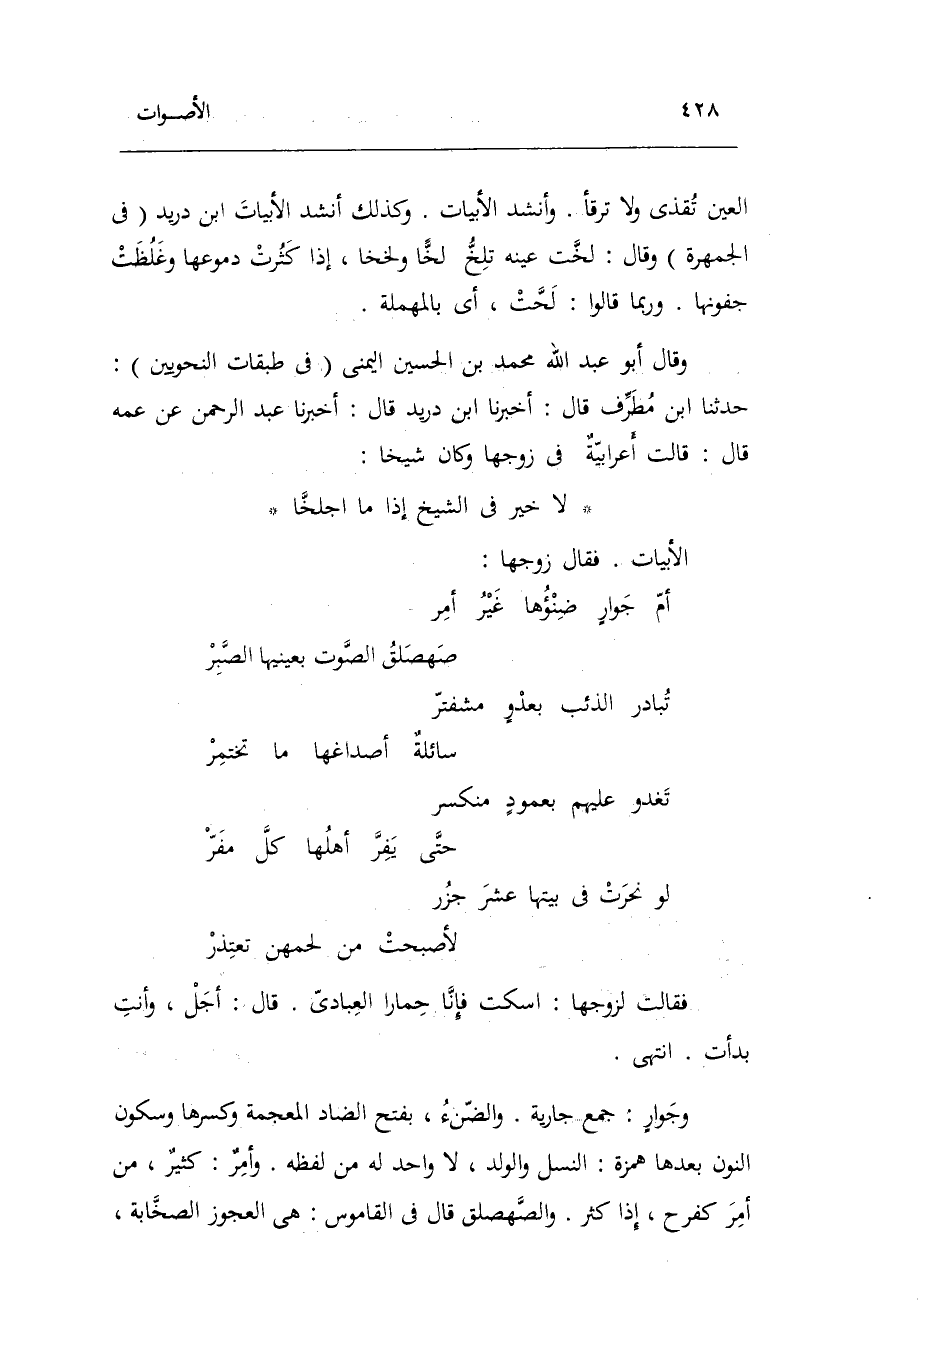 ٤٢٨ الأصوات
العين تُقذى ولا ترقأ . وأنشد الأبيات . وكذلك أنشد الأبياتَ ابن دريد ( فى
الجمهرة ) وقال : لخَّت عينه تلِخُّ لخًّا ولخخا ، إذا كَثُرتْ دموعها وغَلُظَتْ
جفونها . وربما قالوا : لَحَّتْ ، أى بالمهملة .
وقال أبو عبد الله محمد بن الحسين اليمنى ( فى طبقات النحويين ) :
حدثنا ابن مُطَرِّف قال : أخبرنا ابن دريد قال : أخبرنا عبد الرحمن عن عمه
قال : قالت أَعرابيّةٌ فى زوجها وكان شيخا :
* لا خير فى الشيخ إذا ما اجلخَّا *
الأبيات . فقال زوجها :
أمّ جَوارٍ ضِنْؤُها غَيْرُ أمِر
صَهصَلقُ الصَّوت بعينيها الصَّبِرْ
تُبادر الذئب بعدْوٍ مشفترّ
سائلةٌ أصداغها ما تختمِرْ
تَغدو عليهم بعمودٍ منكسر
حتَّى يَفِرَّ أهلُها كلَّ مفَرّْ
لو نحرَتْ فى بيتها عشرَ جزُر
لأصبحتْ من لحمهن تعتِذرْ
فقالت لزوجها : اسكت فإنَّا حِمارا العِبادىّ . قال : أجَلْ ، وأنتِ
بدأت . انتهى .
وجَوارٍ : جمع جارية . والضّنءُ ، بفتح الضاد المعجمة وكسرها وسكون
النون بعدها همزة : النسل والولد ، لا واحد له من لفظه . وأمِرٌ : كثيرٌ ، من
أمِرَ كفرح ، إذا كثر . والصَّهصلق قال فى القاموس : هى العجوز الصخَّابة ،